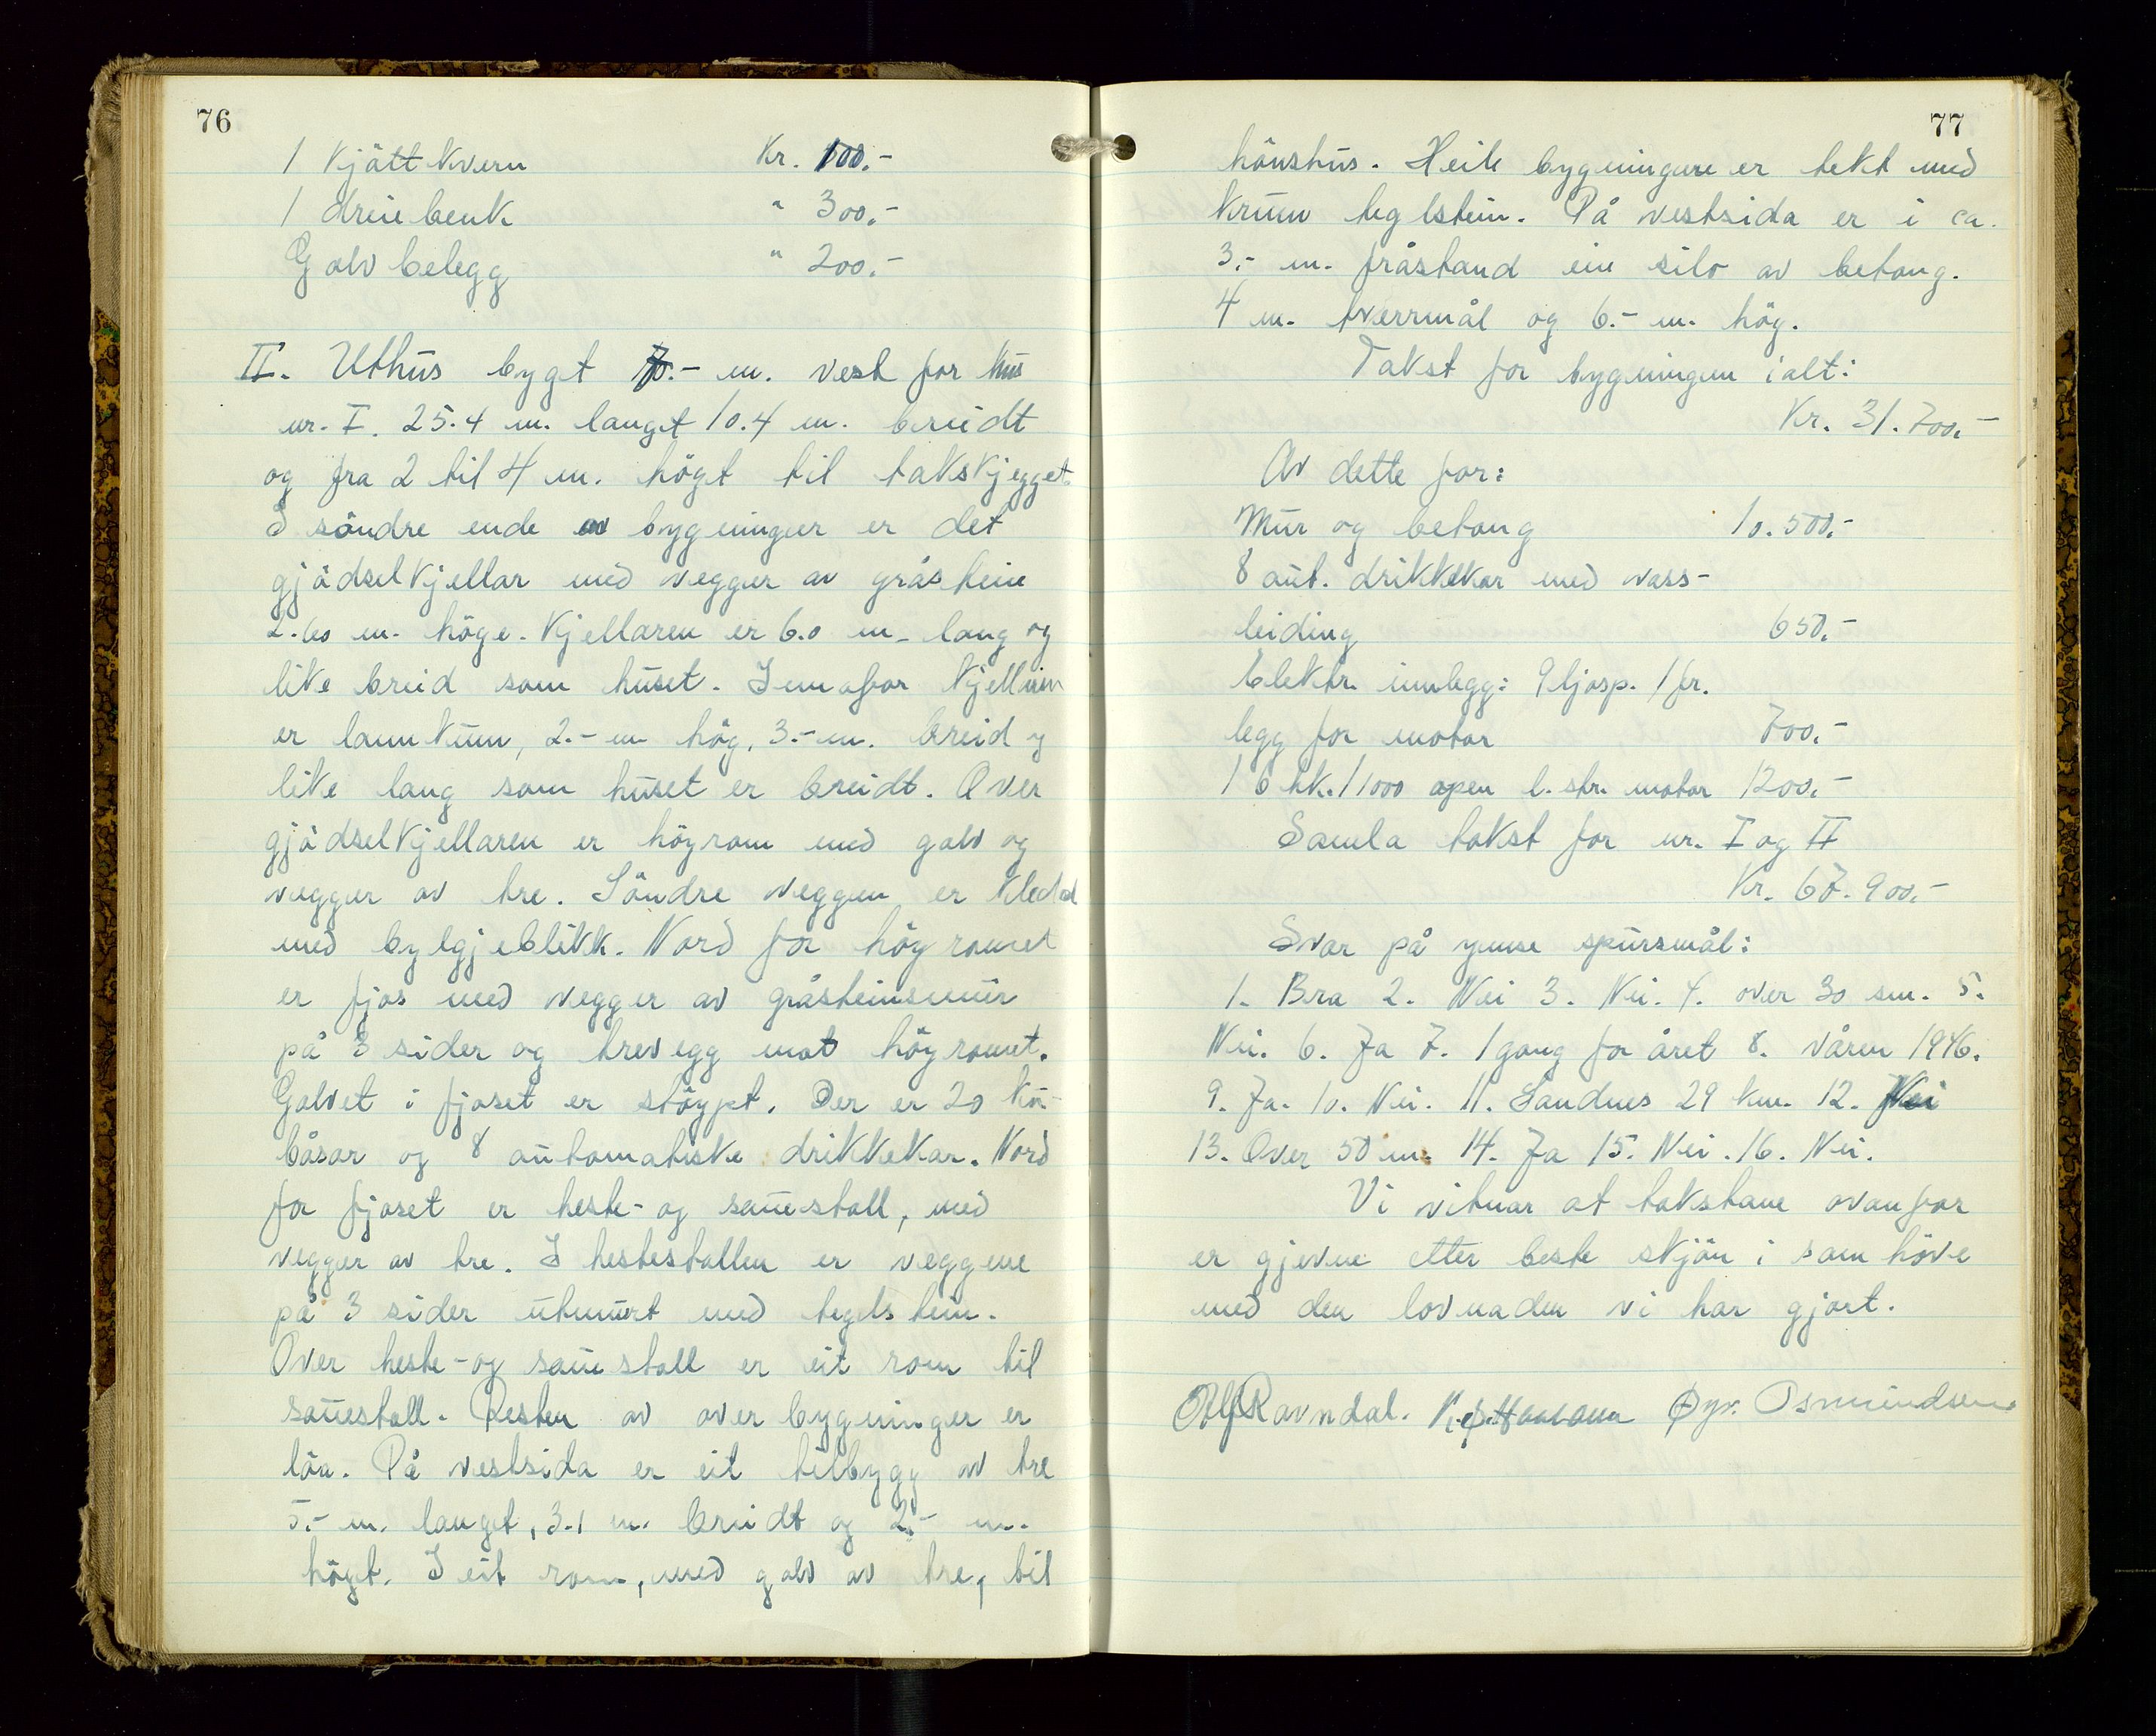 76
1 Kjött Kvern Kr. 100.-
1 dreiebenk " 300.-
Golvbelegg " 200.-
II. Uthus bygt 70.- m. vest for hus
nr. I. 25.4 m. langt 10.4 m. breidt
og fra 2 til 4 m. högt til takskjegget.
I söndre ende av bygningen er det
gjödselkjellar med vegger av gråstein
2.60 m. höge. Kjellaren er 6.0 m. lang og
like breid som huset. Innafor kjellaren
er lannkum, 2.- m hög, 3.- m. breid og
like lang som huset er breidt. Over
gjödselkjellaren er höyrom med golv og
vegger av tre. Söndre veggen er kledd
med bylgjeblikk. Nord for höyromet
er fjos med vegger av gråsteinsmur
på 3 sider og trevegg mot höyromet.
Golvet i fjoset er stöypt. Der er 20 ku-
båsar og 8 automatiske drikkekar. Nord
for fjoset er heste- og sauestall, med
vegger av tre. I hestestallen er veggene
på 3 sider utmurt med teglstein.
Over heste- og sauestall er eit rom til
sauestall. Resten av overbygningen er
löa. På vestsida er eit tilbygg av tre
5.- m. langt, 3.1 m. breidt og 2.- m.
högt. I eit rom, med golv av tre, til
77
hönshus. Heile bygningane er tekt med
krum teglstein. På vestsida er i ca.
3.- m. fråstand ein silo av betong.
4 m. tverrmål og 6.- m. hög.
Takst for bygningen ialt:
Kr. 31.700.-
Av dette for:
Mur og betong 10.500.-
8 aut. drikkekar med vass-
leiding 650.-
Elektr. innlegg: 9 ljosp. 1 fr.
legg for motor 700.-
1 6 hk. 1/1000 open l. str. motor 1200.-
Samla takst for nr. I og II
Kr. 67.900.-
Svar på ymse spursmål:
1. Bra 2. Nei 3. Nei. 4. over 30 sm. 5.
Nei. 6. Ja 7. 1 gong for året 8. våren 1946.
9. Ja. 10. Nei. 11. Sandnes 29 km. 12. Nei
13. Over 50 m. 14. Ja 15. Nei. 16. Nei.
Vi vitnar at takstane ovanfor
er gjevne etter beste skjön i samhöve
med den lovnaden vi har gjort.
Alf Ravndal. Øyv. Osmundsen